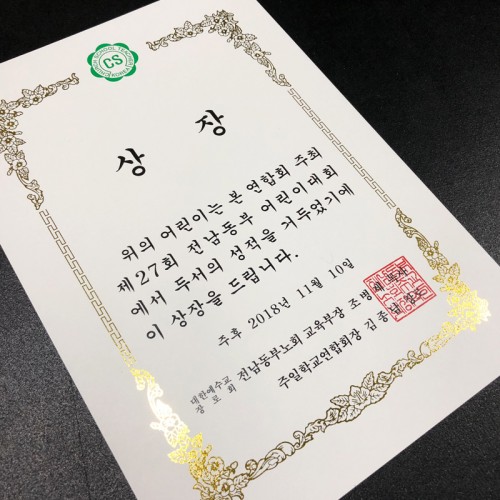 CS
상 장
위의 어린이는 본 연합회 주최
제27회 전남동부 어린이대회
에서 두서의 성적을 거두었기에
이 상장을 드립니다.
주후 2018년 11월 10일
대한예수교
장로회
전남동부노회 교육부장 조병
주일학교연합회장 김종